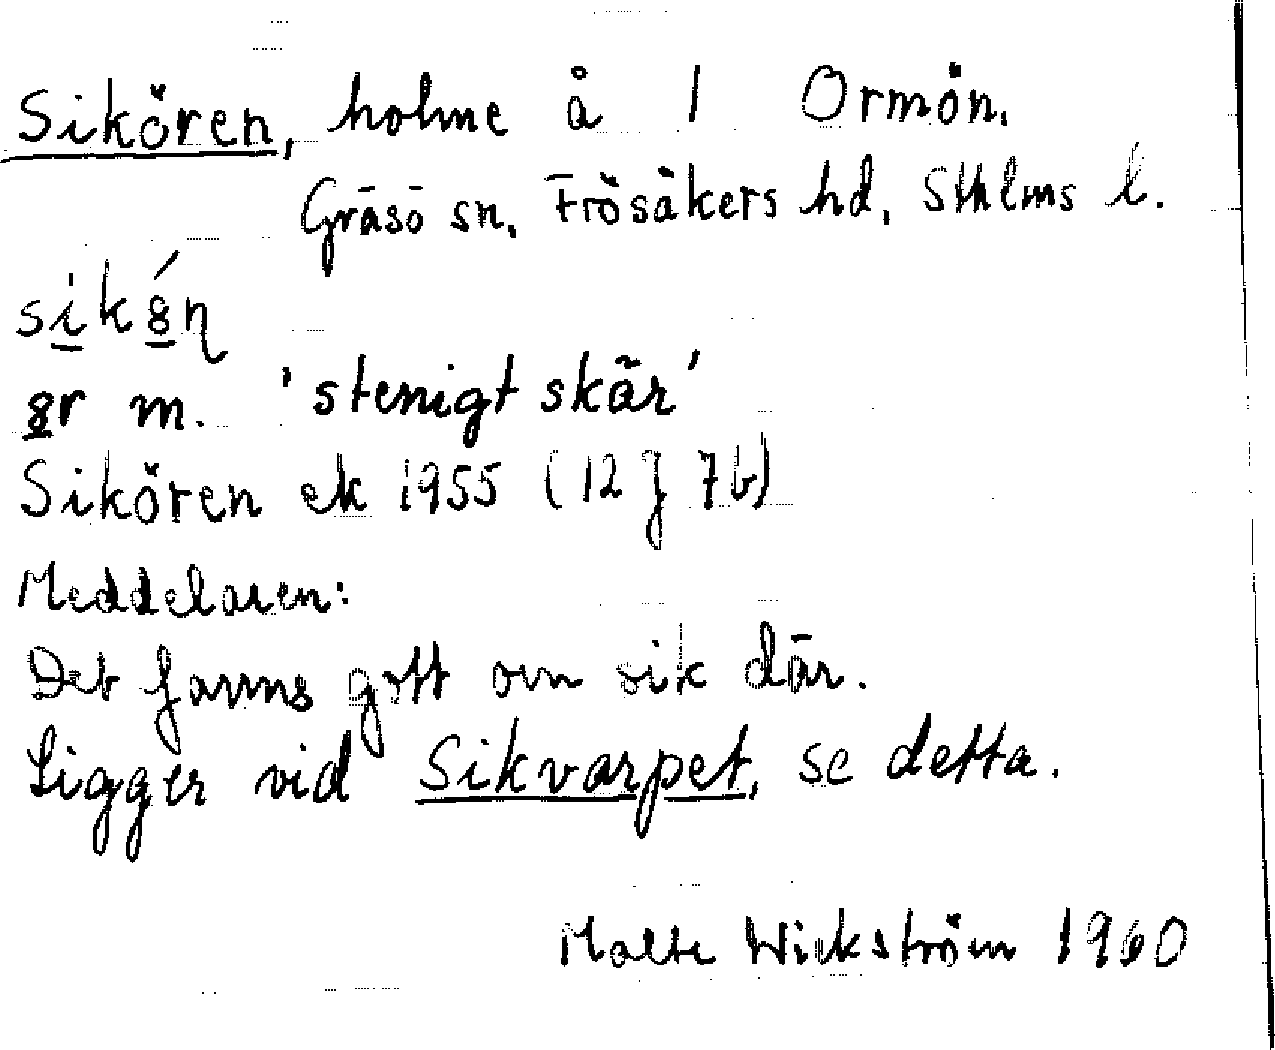 Sikören, holme å 1 Ormön.
Gräsö sn, Frösåkers hd, Sthlms l.
sikȣ́ɳ
ȣr m. 'stenigt skär'
Sikören ek 1955 (12 J 7b)
Meddelaren:
Det fanns gott om sik där.
Ligger vid Sikvarpet, se detta.
Malte Wickström 1960